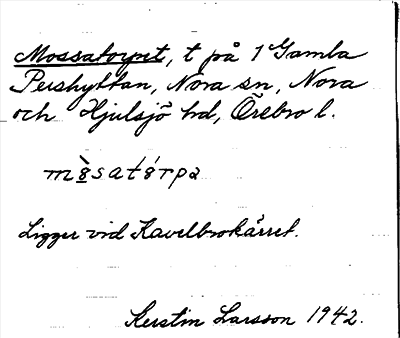 Mossatorpet, t på 1 Gamla
Pershyttan, Nora sn, Nora
och Hjulsjö hd, Örebro l.
mò̱satórpa
Ligger vid Kavelbrokärret.
Kerstin Larsson 1942.